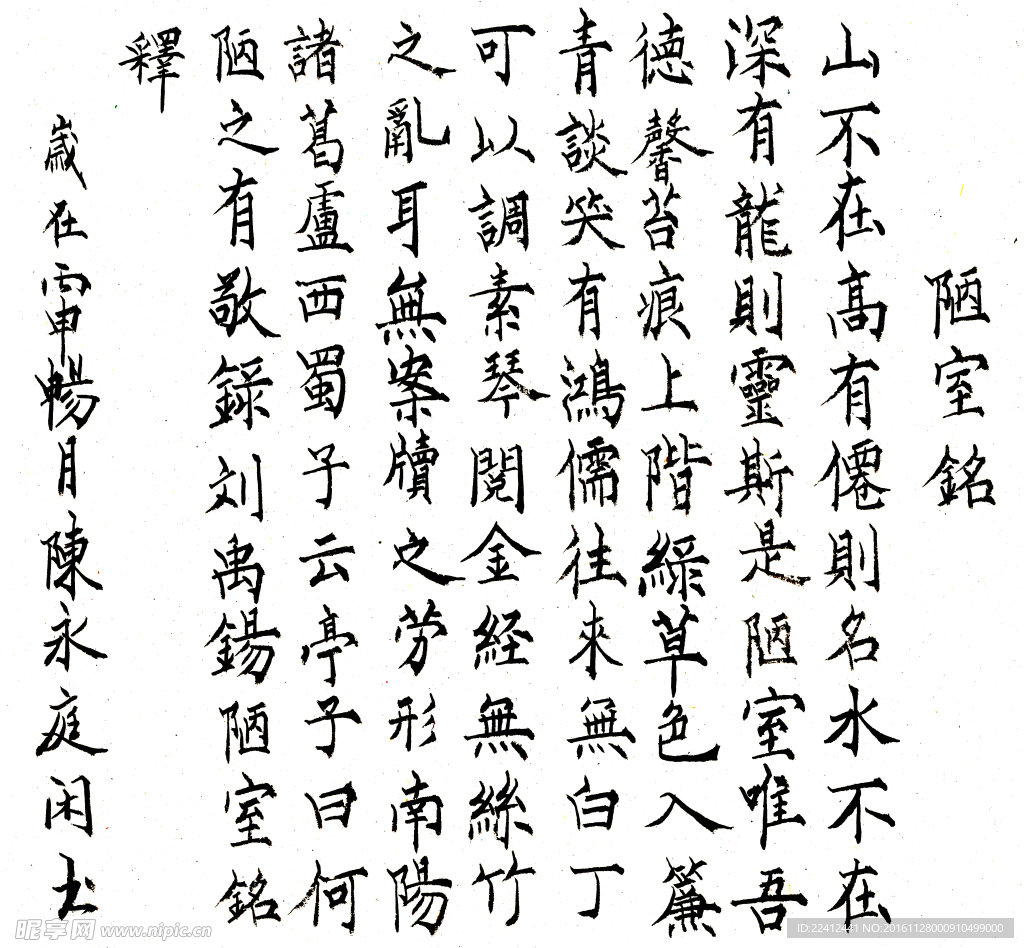 陋室銘
山不在高有僊則名水不在
深有龍則靈斯是陋室唯吾
德馨苔痕上階綠草色入簾
青談笑有鴻儒往來無白丁
可以調素琴閱金経無絲竹
之亂耳無案牘之劳形南陽
諸葛盧西蜀子云亭子曰何
陋之有敬錄刘禹錫陋室銘
釋
歲在丙申暢月陳永庭闲书
昵享网 www.nipic.cn
ID:22412441 NO:20161128000910499000